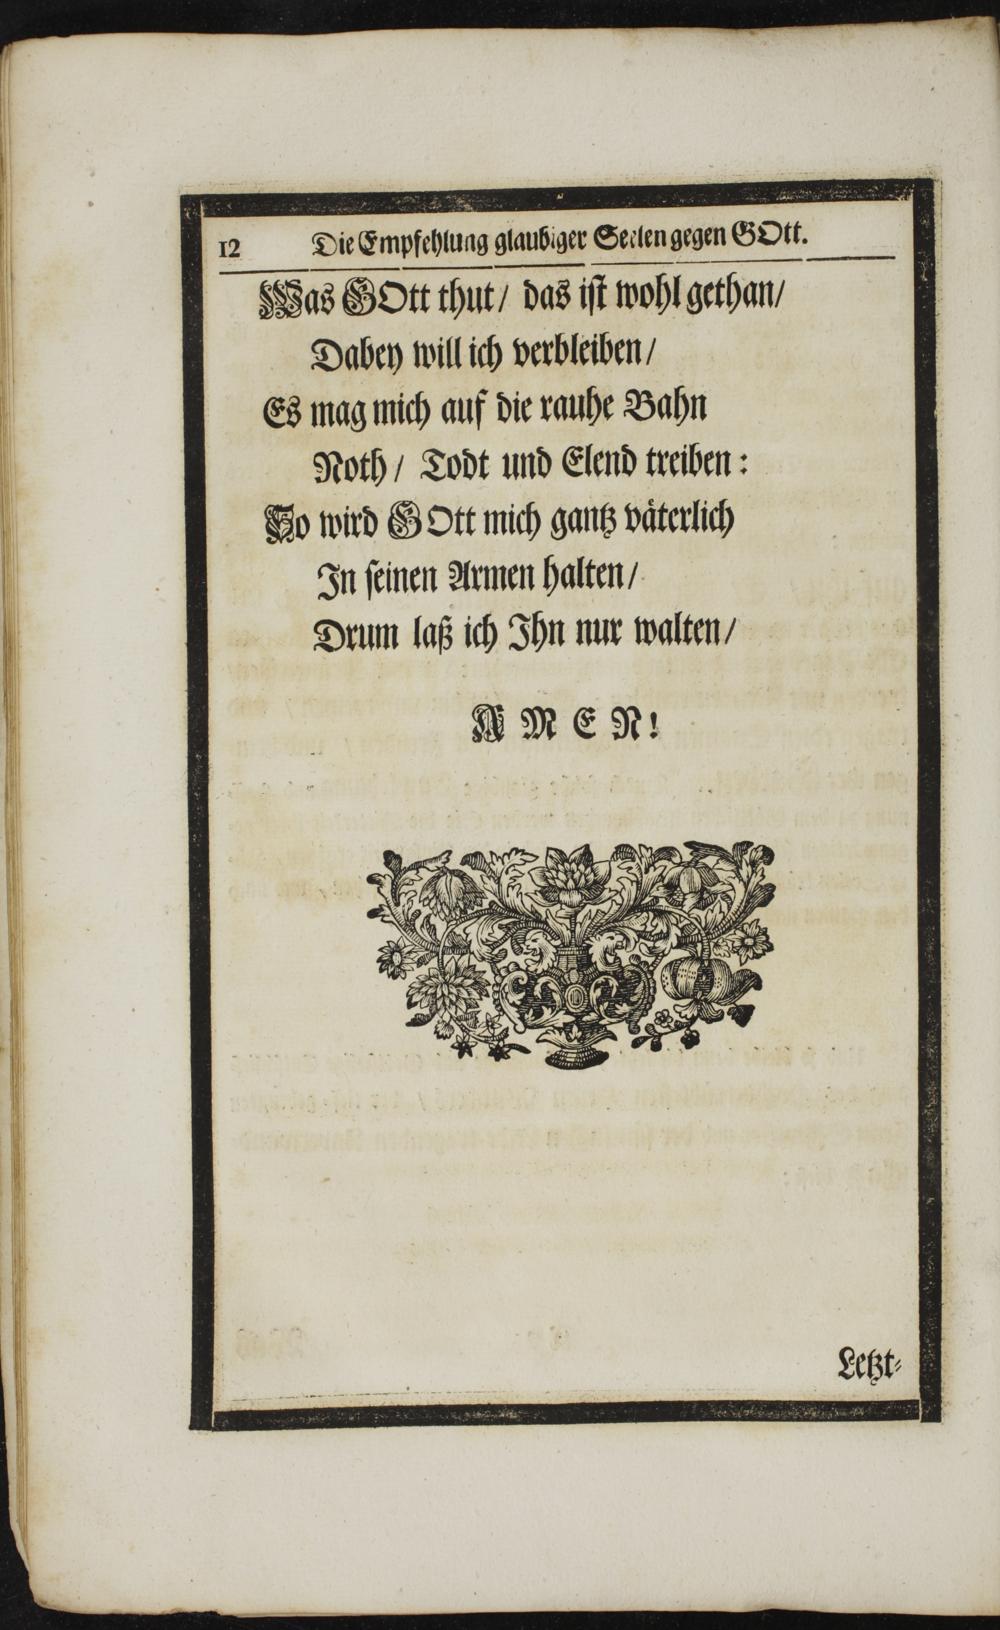 12 Die Empfehlung glaubiger Seelen gegen GOtt.
Was GOtt thut/ das ist wohl gethan/
Dabey will ich verbleiben/
Es mag mich auf die rauhe Bahn
Noth/ Todt und Elend treiben:
So wird GOtt mich gantz väterlich
In seinen Armen halten/
Drum laß ich Ihn nur walten/
AMEN!
Letzt-